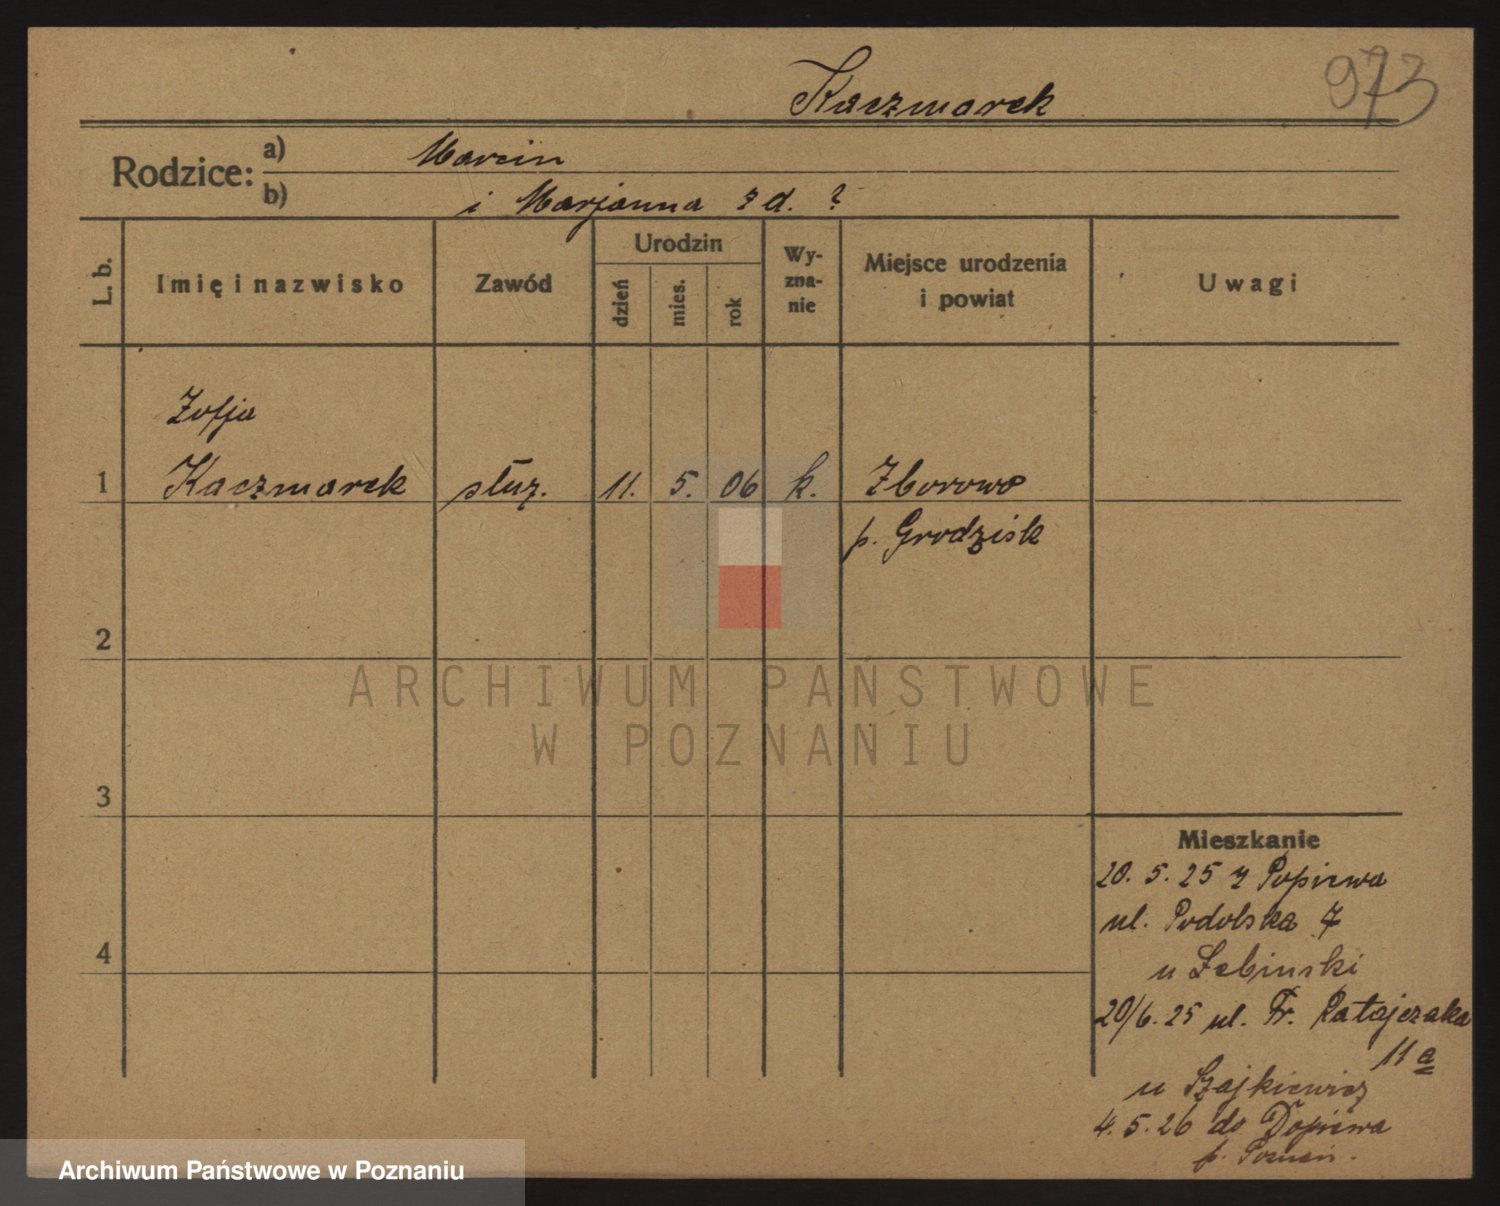 Kaczmarek
973
Rodzice: a) Marcin
b) i Marjanna z d. ?
L. b. Imię i nazwisko Zawód Urodzin dzień mies. rok Wy-zna-nie Miejsce urodzenia i powiat Uwagi
Zofja
1 Kaczmarek służ. 11. 5. 06 k. Zborowo
p. Grodzisk
2
ARCHIWUM PAŃSTWOWE
W POZNANIU
3
Mieszkanie
20. 5. 25 z Popiewa
ul. Podolska 7
4
u Łebinski
20/6. 25 ul. Fr. Ratajczaka
11 a
u Szajkiewicz
4. 5. 26 do Dopiewa
p. Poznań.
Archiwum Państwowe w Poznaniu